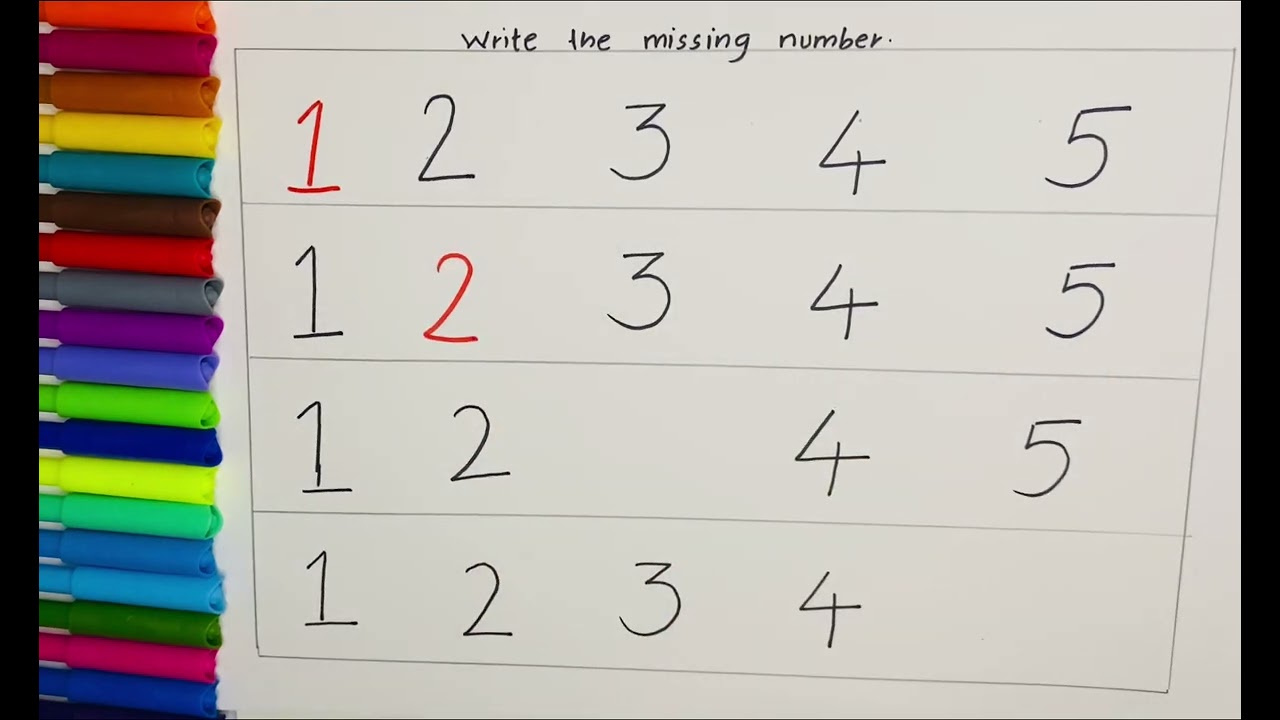 Write the missing number.
1 2 3 4 5
1 2 3 4 5
1 2 4 5
1 2 3 4